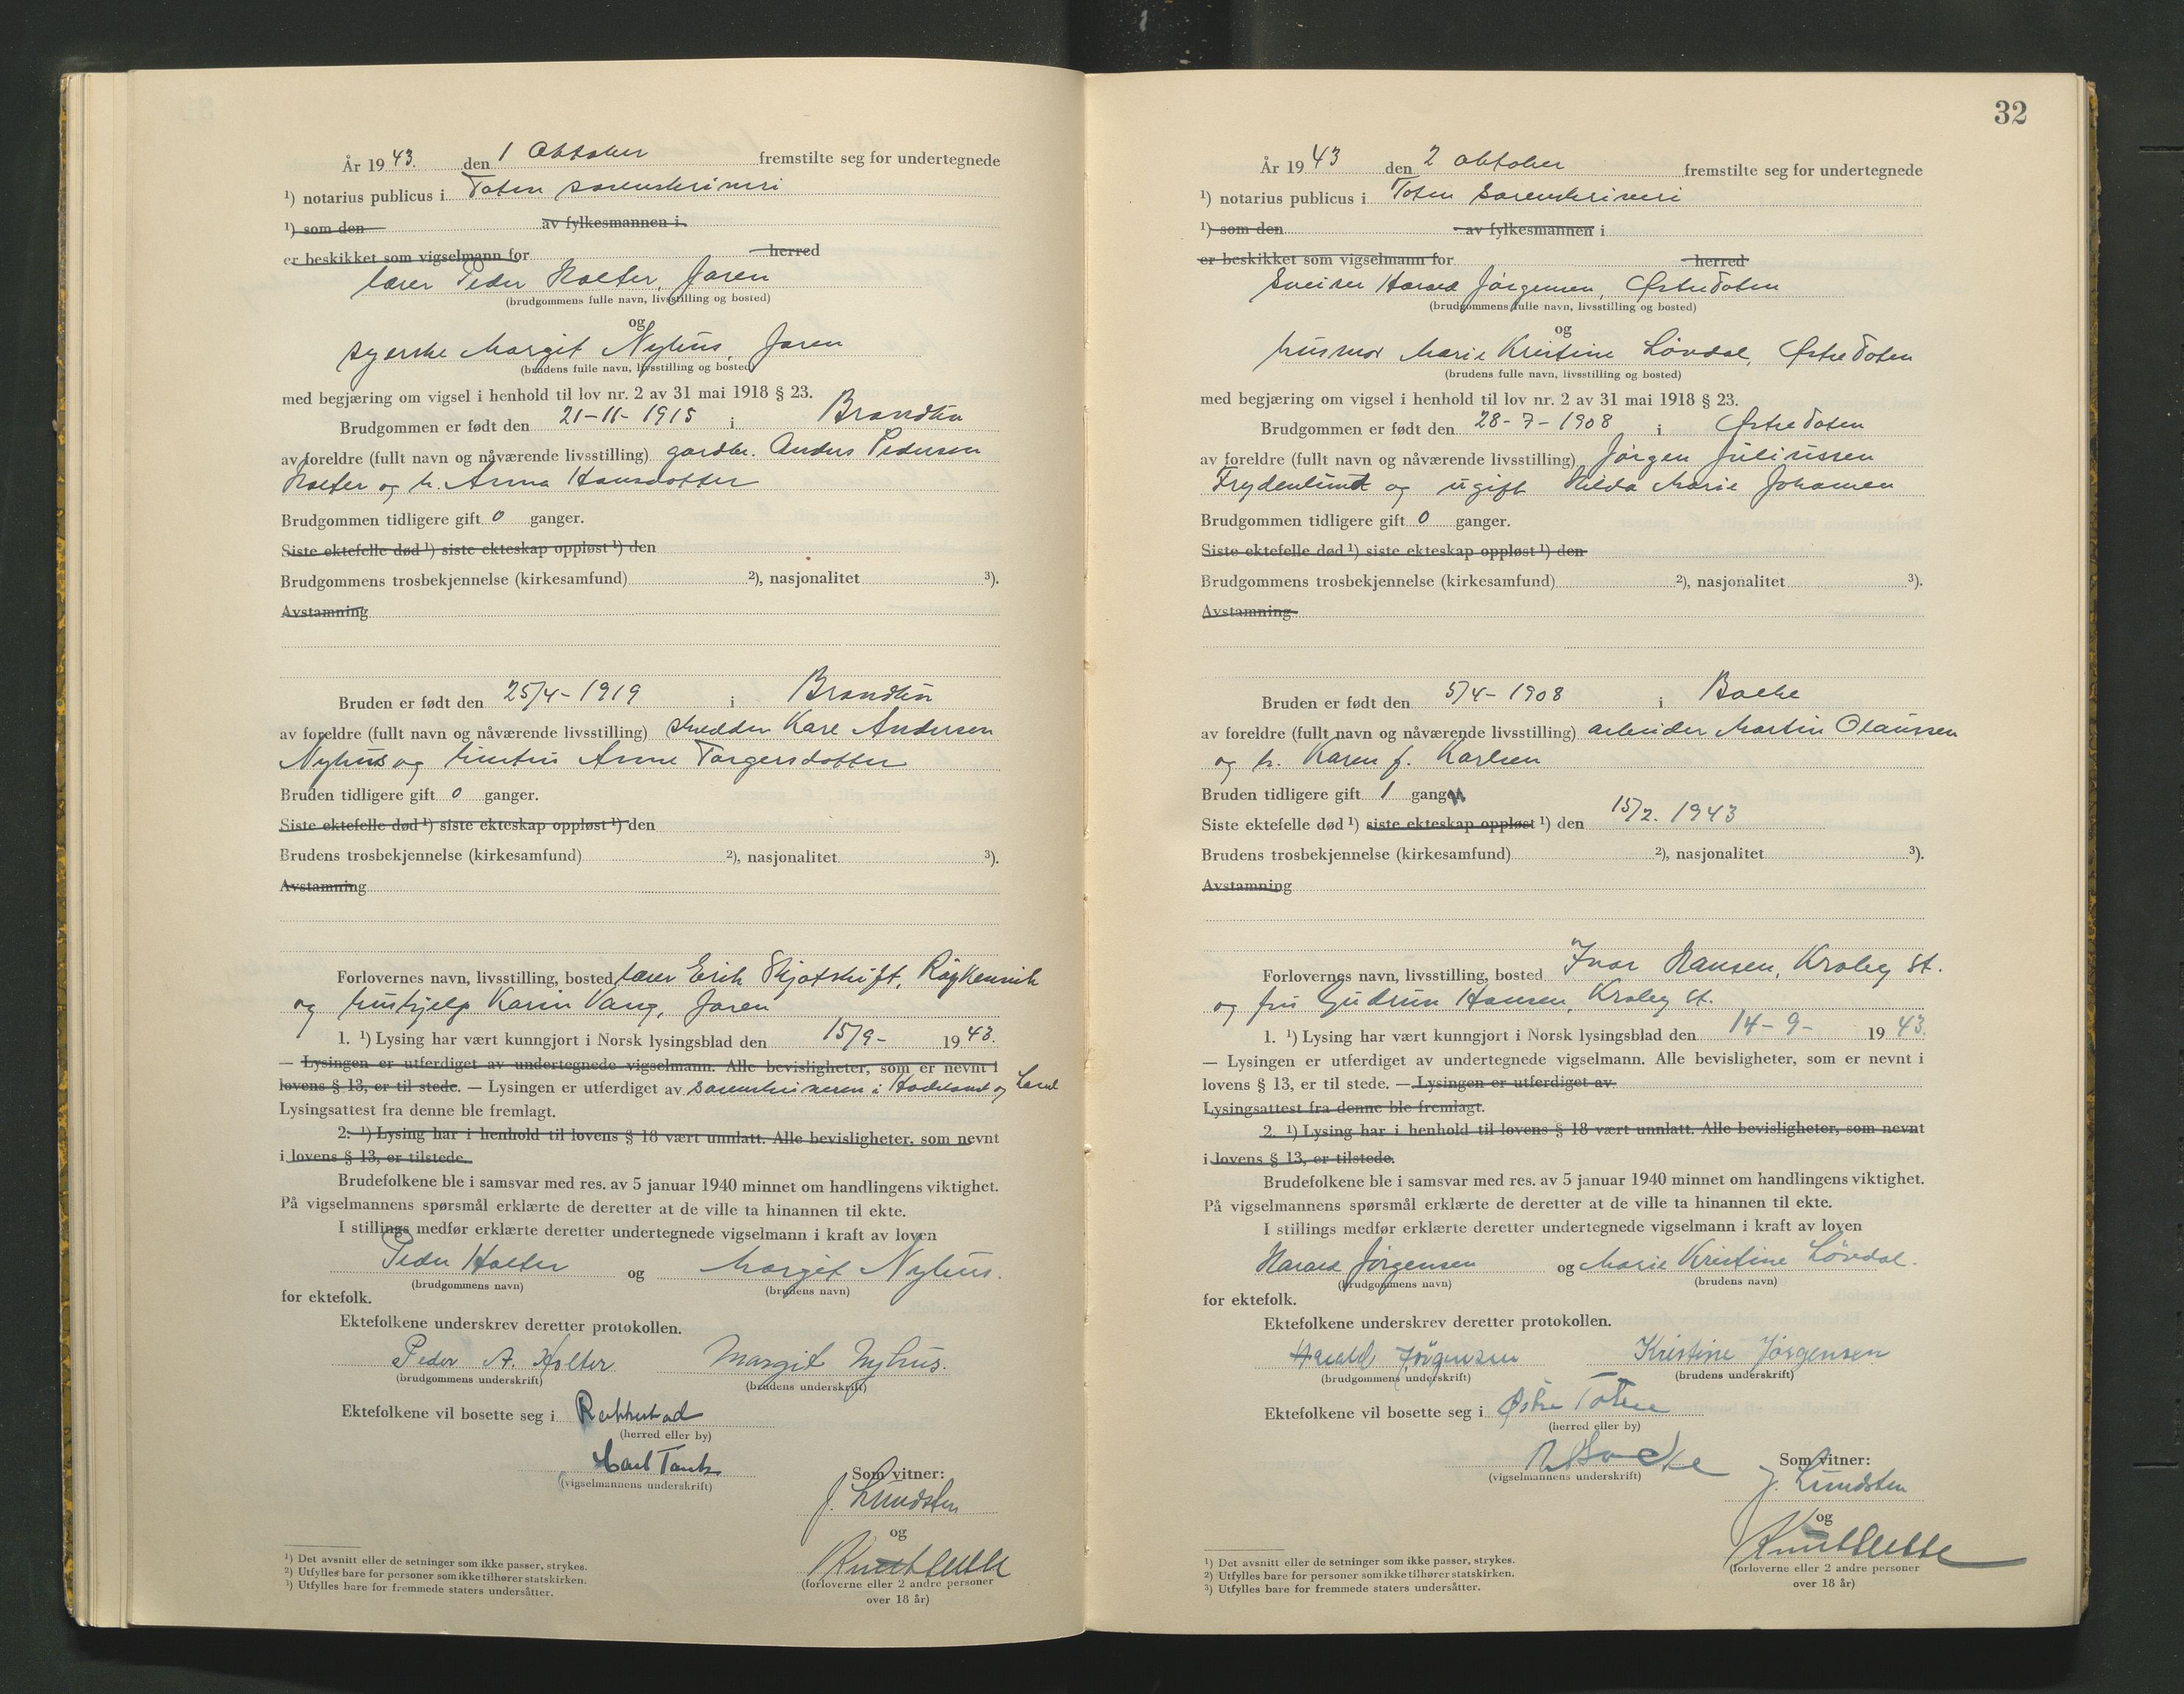 År 19 43. den 1 Oktober fremstilte seg for undertegnede
¹) notarius publicus i Toten sorenskriveri
¹) som den av fylkesmannen i
er beskikket som vigselmann for herred
lærer Peder Holter, Jaren
(brudgommens fulle navn, livsstilling og bosted)
og
syerske Margit Nyhus, Jaren
(brudens fulle navn, livsstilling og bosted)
med begjæring om vigsel i henhold til lov nr. 2 av 31 mai 1918 § 23.
Brudgommen er født den 21-11-1915 i Brandbu
av foreldre (fullt navn og nåværende livsstilling) gardbr. Anders Pedersen
Holter og h. Anna Hansdotter
Brudgommen tidligere gift 0 ganger.
Siste ektefelle død ¹) siste ekteskap oppløst ¹) den
Brudgommens trosbekjennelse (kirkesamfund) ²), nasjonalitet ³).
Avstamning
Bruden er født den 25/4-1919 i Brandbu
av foreldre (fullt navn og nåværende livsstilling) skredder Karl Andersen
Nyhus og hustru Anne Torgersdotter
Bruden tidligere gift 0 ganger.
Siste ektefelle død ¹) siste ekteskap oppløst ¹) den
Brudens trosbekjennelse (kirkesamfund) ²), nasjonalitet ³).
Avstamning
Forlovernes navn, livsstilling, bosted lærer Erik Skjøtskift, Røykenvik
og hushjelp Karin Vang, Jaren
1. ¹) Lysing har vært kunngjort i Norsk lysingsblad den 15/9- 19 43.
— Lysingen er utferdiget av undertegnede vigselmann. Alle bevisligheter, som er nevnt i
lovens § 13, er til stede. — Lysingen er utferdiget av sorenskriveren i Hadeland og Land
Lysingsattest fra denne ble fremlagt.
2. ¹) Lysing har i henhold til lovens § 18 vært unnlatt. Alle bevisligheter, som nevnt
i lovens § 13, er tilstede.
Brudefolkene ble i samsvar med res. av 5 januar 1940 minnet om handlingens viktighet.
På vigselmannens spørsmål erklærte de deretter at de ville ta hinannen til ekte.
I stillings medfør erklærte deretter undertegnede vigselmann i kraft av loven
Peder Holter og Margit Nyhus.
(brudgommens navn) (brudens navn)
for ektefolk.
Ektefolkene underskrev deretter protokollen.
Peder A. Holter Margit Nyhus.
(brudgommens underskrift) (brudens underskrift)
Ektefolkene vil bosette seg i Rakkestad
(herred eller by)
Carl Tank
(vigselmannens underskrift)
Som vitner:
J. Lundsten
og
(forloverne eller 2 andre personer
over 18 år)
¹) Det avsnitt eller de setninger som ikke passer, strykes.
²) Utfylles bare for personer som ikke tilhører statskirken.
³) Utfylles bare for fremmede staters undersåtter.
32
År 19 43 den 2 oktober fremstilte seg for undertegnede
¹) notarius publicus i Toten sorenskriveri
¹) som den av fylkesmannen i
er beskikket som vigselmann for herred
Sveiser Harald Jørgensen, Østre Toten
(brudgommens fulle navn, livsstilling og bosted)
og
husmor Marie Kristine Løvdal, Østre Toten
(brudens fulle navn, livsstilling og bosted)
med begjæring om vigsel i henhold til lov nr. 2 av 31 mai 1918 § 23.
Brudgommen er født den 28-7-1908 i Østre Toten
av foreldre (fullt navn og nåværende livsstilling) Jørgen Juliussen
Frydenlund og ugift Hilda Marie Johansen
Brudgommen tidligere gift 0 ganger.
Siste ektefelle død ¹) siste ekteskap oppløst ¹) den
Brudgommens trosbekjennelse (kirkesamfund) ²), nasjonalitet ³).
Avstamning
Bruden er født den 5/4-1908 i
av foreldre (fullt navn og nåværende livsstilling) arbeider Martin Olaussen
og h. Karen f. Karlsen
Bruden tidligere gift 1 gang
Siste ektefelle død ¹) siste ekteskap oppløst ¹) den 15/2. 1943
Brudens trosbekjennelse (kirkesamfund) ²), nasjonalitet ³).
Avstamning
Forlovernes navn, livsstilling, bosted Ivar Hansen, Kraby st.
og fru Gudrun Hansen, Kraby st.
1. ¹) Lysing har vært kunngjort i Norsk lysingsblad den 14-9- 19 43.
— Lysingen er utferdiget av undertegnede vigselmann. Alle bevisligheter, som er nevnt i
lovens § 13, er til stede. — Lysingen er utferdiget av
Lysingsattest fra denne ble fremlagt.
2. ¹) Lysing har i henhold til lovens § 18 vært unnlatt. Alle bevisligheter, som nevnt
i lovens § 13, er tilstede.
Brudefolkene ble i samsvar med res. av 5 januar 1940 minnet om handlingens viktighet.
På vigselmannens spørsmål erklærte de deretter at de ville ta hinannen til ekte.
I stillings medfør erklærte deretter undertegnede vigselmann i kraft av loven
Harald Jørgensen og Marie Kristine Løvdal.
(brudgommens navn) (brudens navn)
for ektefolk.
Ektefolkene underskrev deretter protokollen.
Harald Jørgensen Kristine Jørgensen
(brudgommens underskrift) (brudens underskrift)
Ektefolkene vil bosette seg i Østre Toten
(herred eller by)
(vigselmannens underskrift)
Som vitner:
J. Lundsten
og
(forloverne eller 2 andre personer
over 18 år)
¹) Det avsnitt eller de setninger som ikke passer, strykes.
²) Utfylles bare for personer som ikke tilhører statskirken.
³) Utfylles bare for fremmede staters undersåtter.